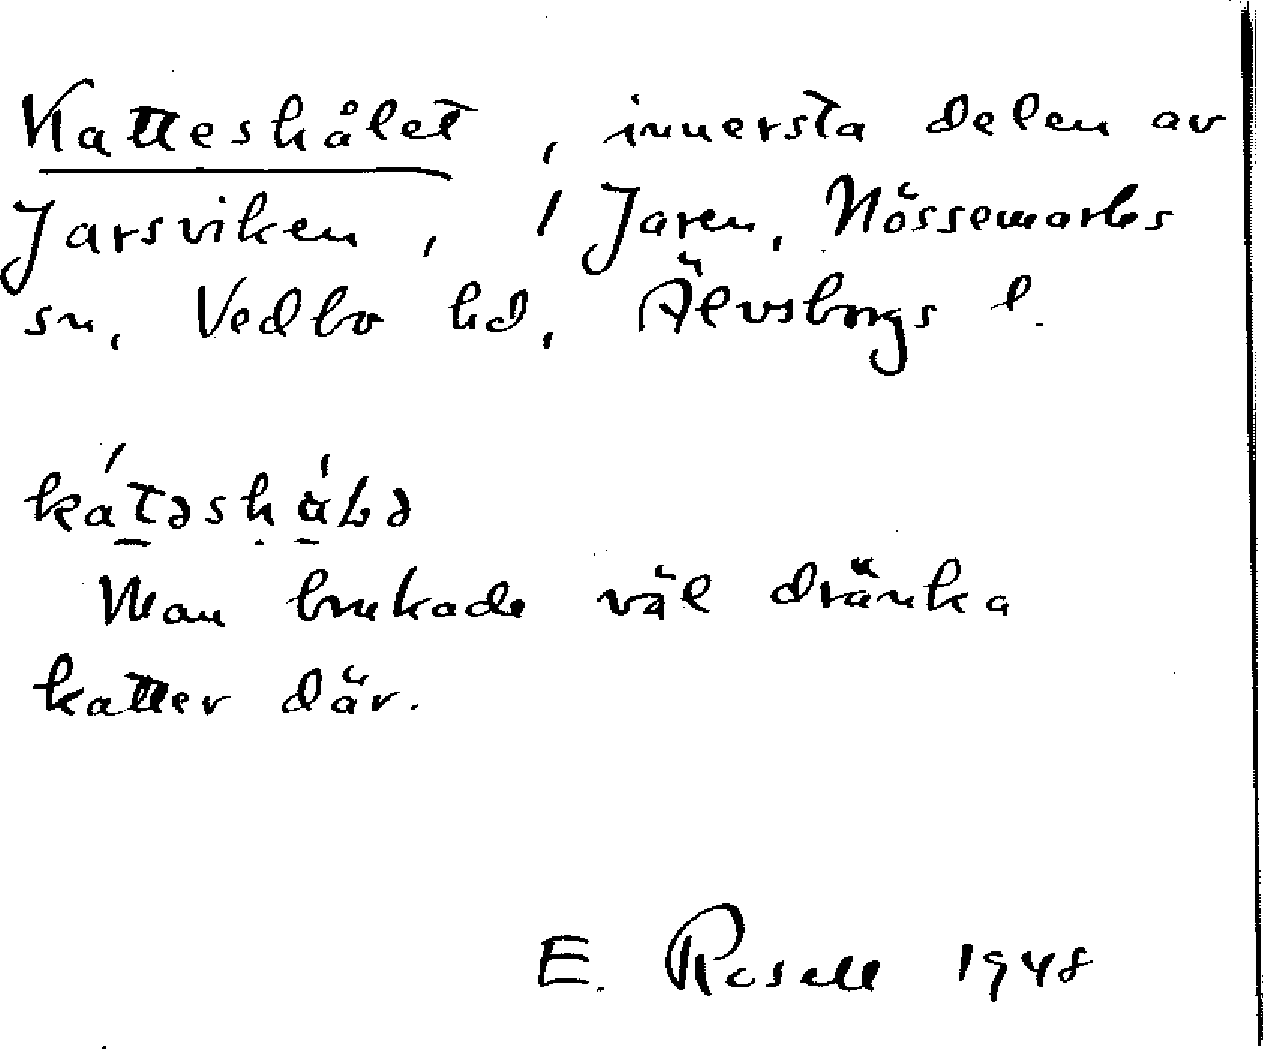 Katteshålet, innersta delen av
Jarsviken, i Jaren, Nössemarks
sn, Vedbo hd, Älvsborgs l.
Man brukade väl dränka
katter där.
E. Rosell 1948